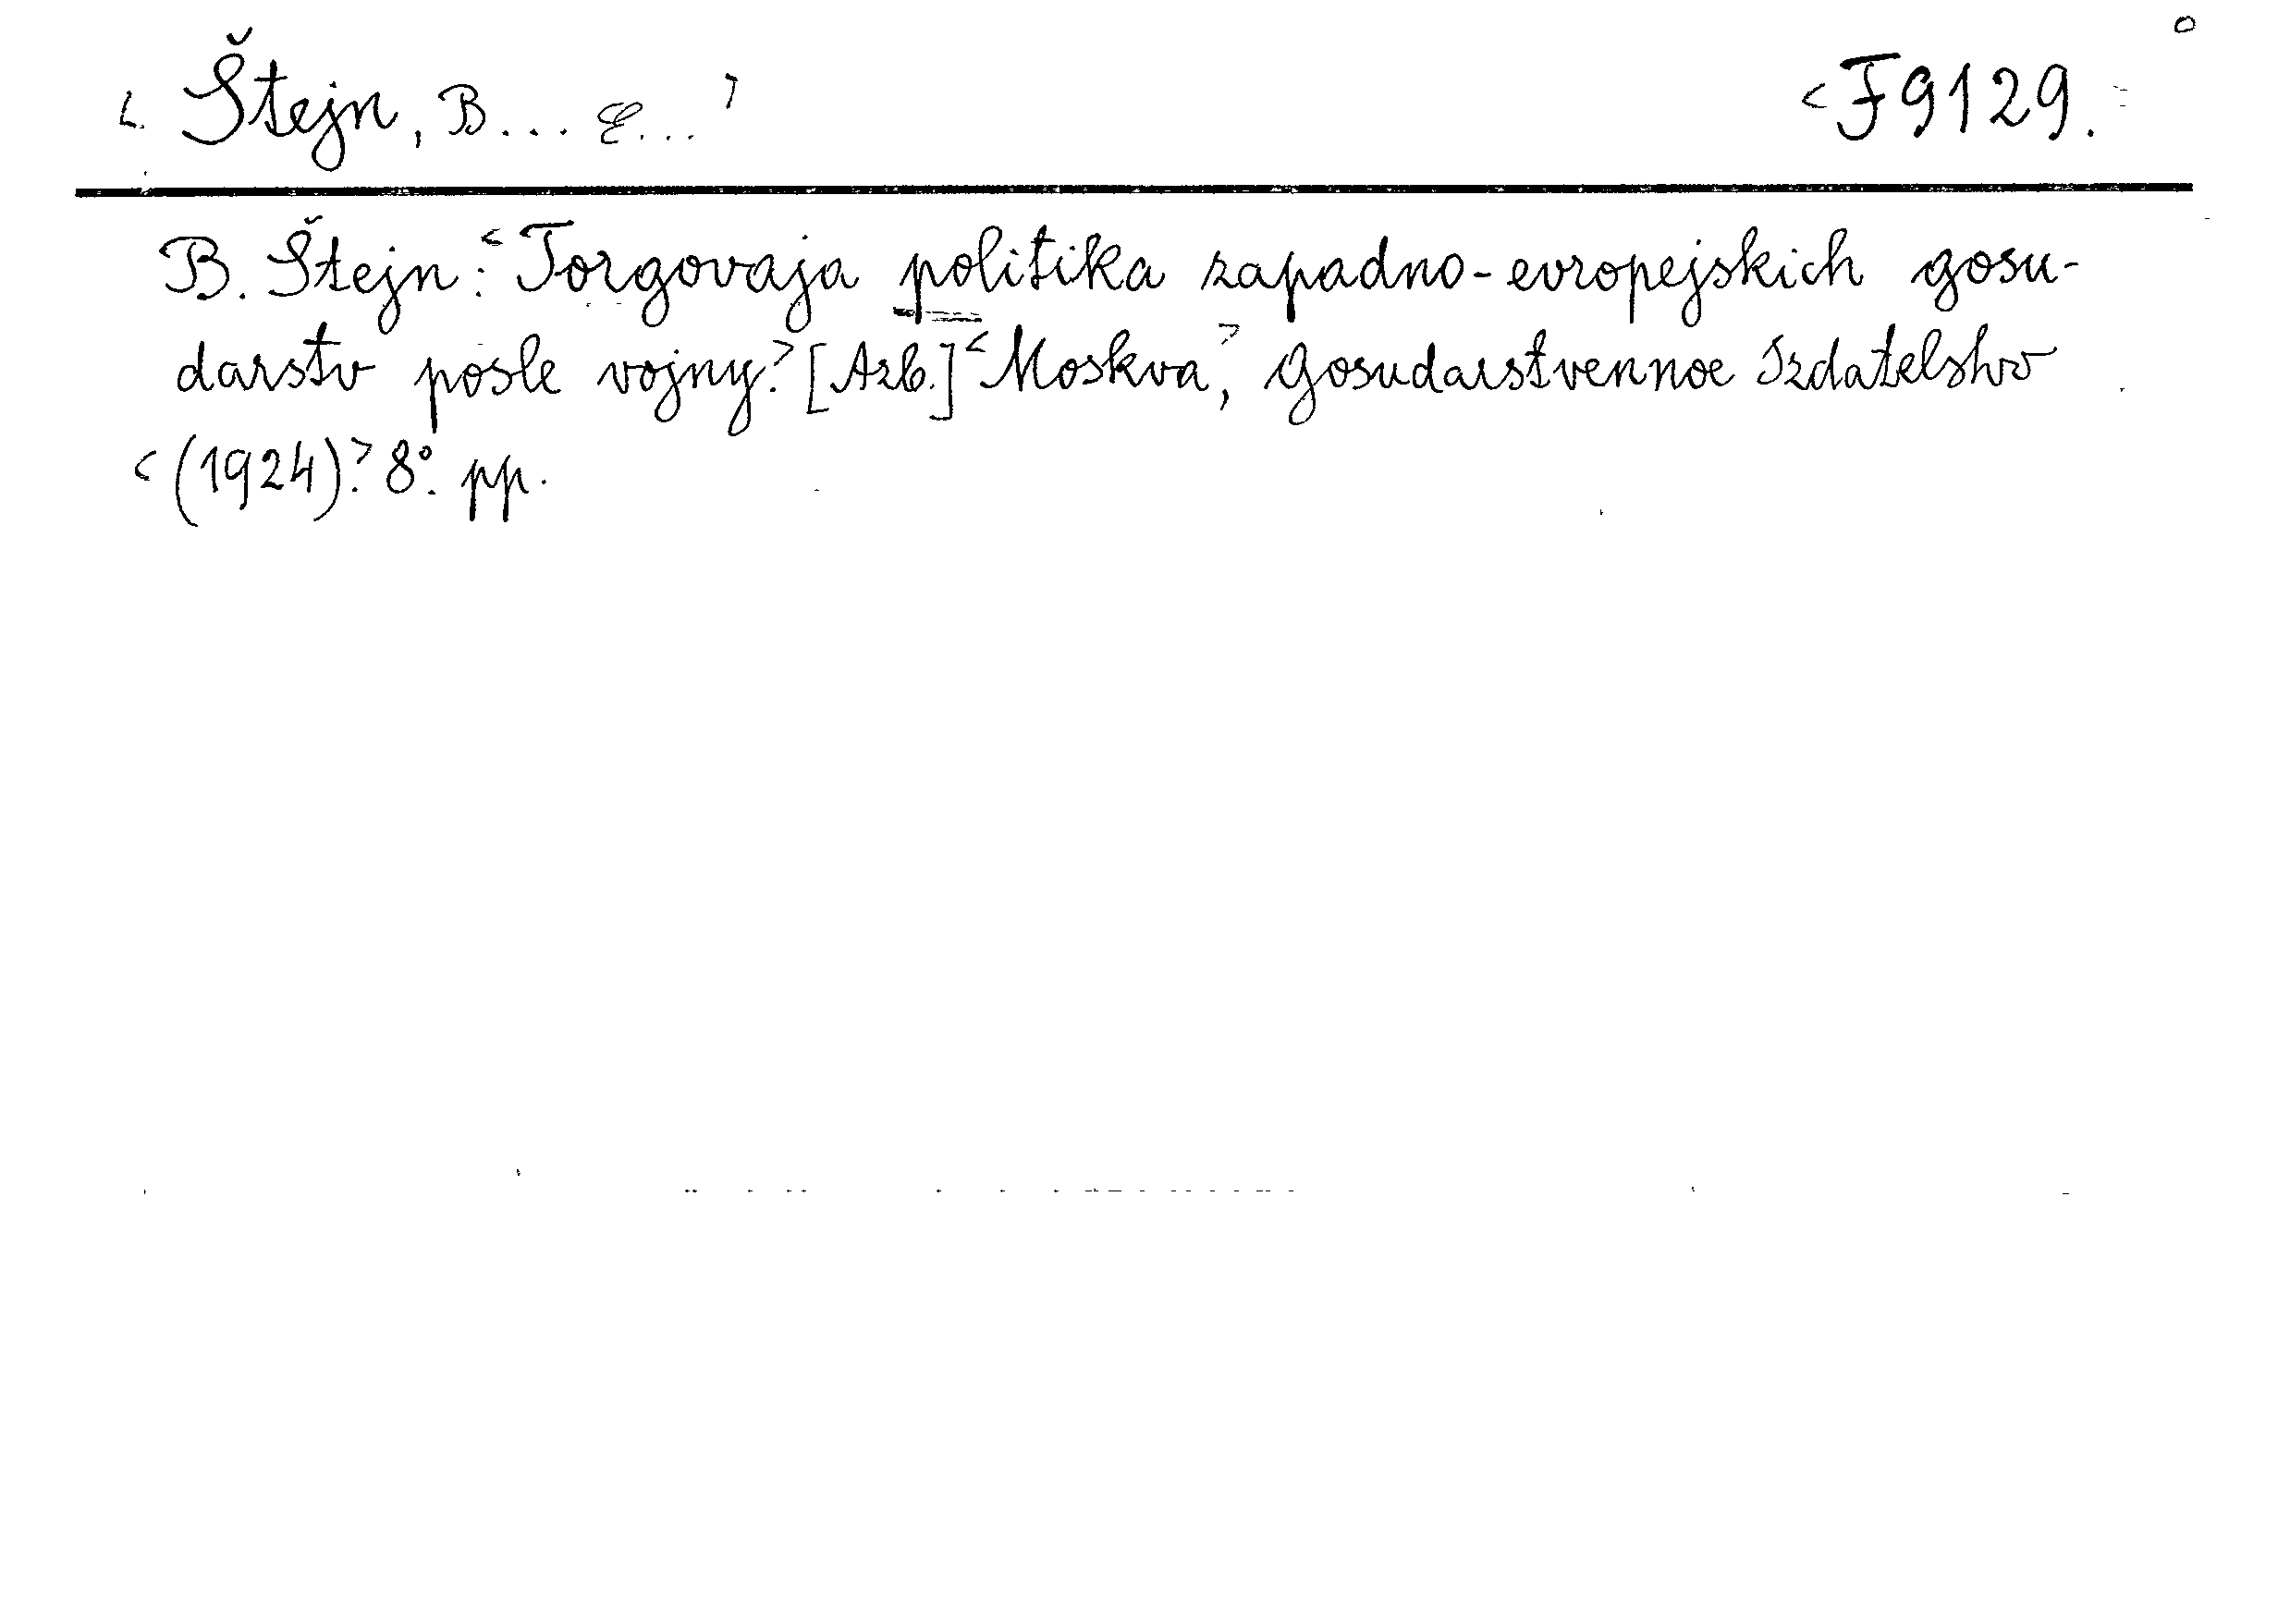 < Štejn, B... E... > <F9129.
B. Štejn: <Torgovaja politika zapadno-evropejskich gosu-
darstv posle vojny.> [Azb.] <Moskva>, Gosudarstvennoe Izdatelstvo
<(1924).> 8°. pp.